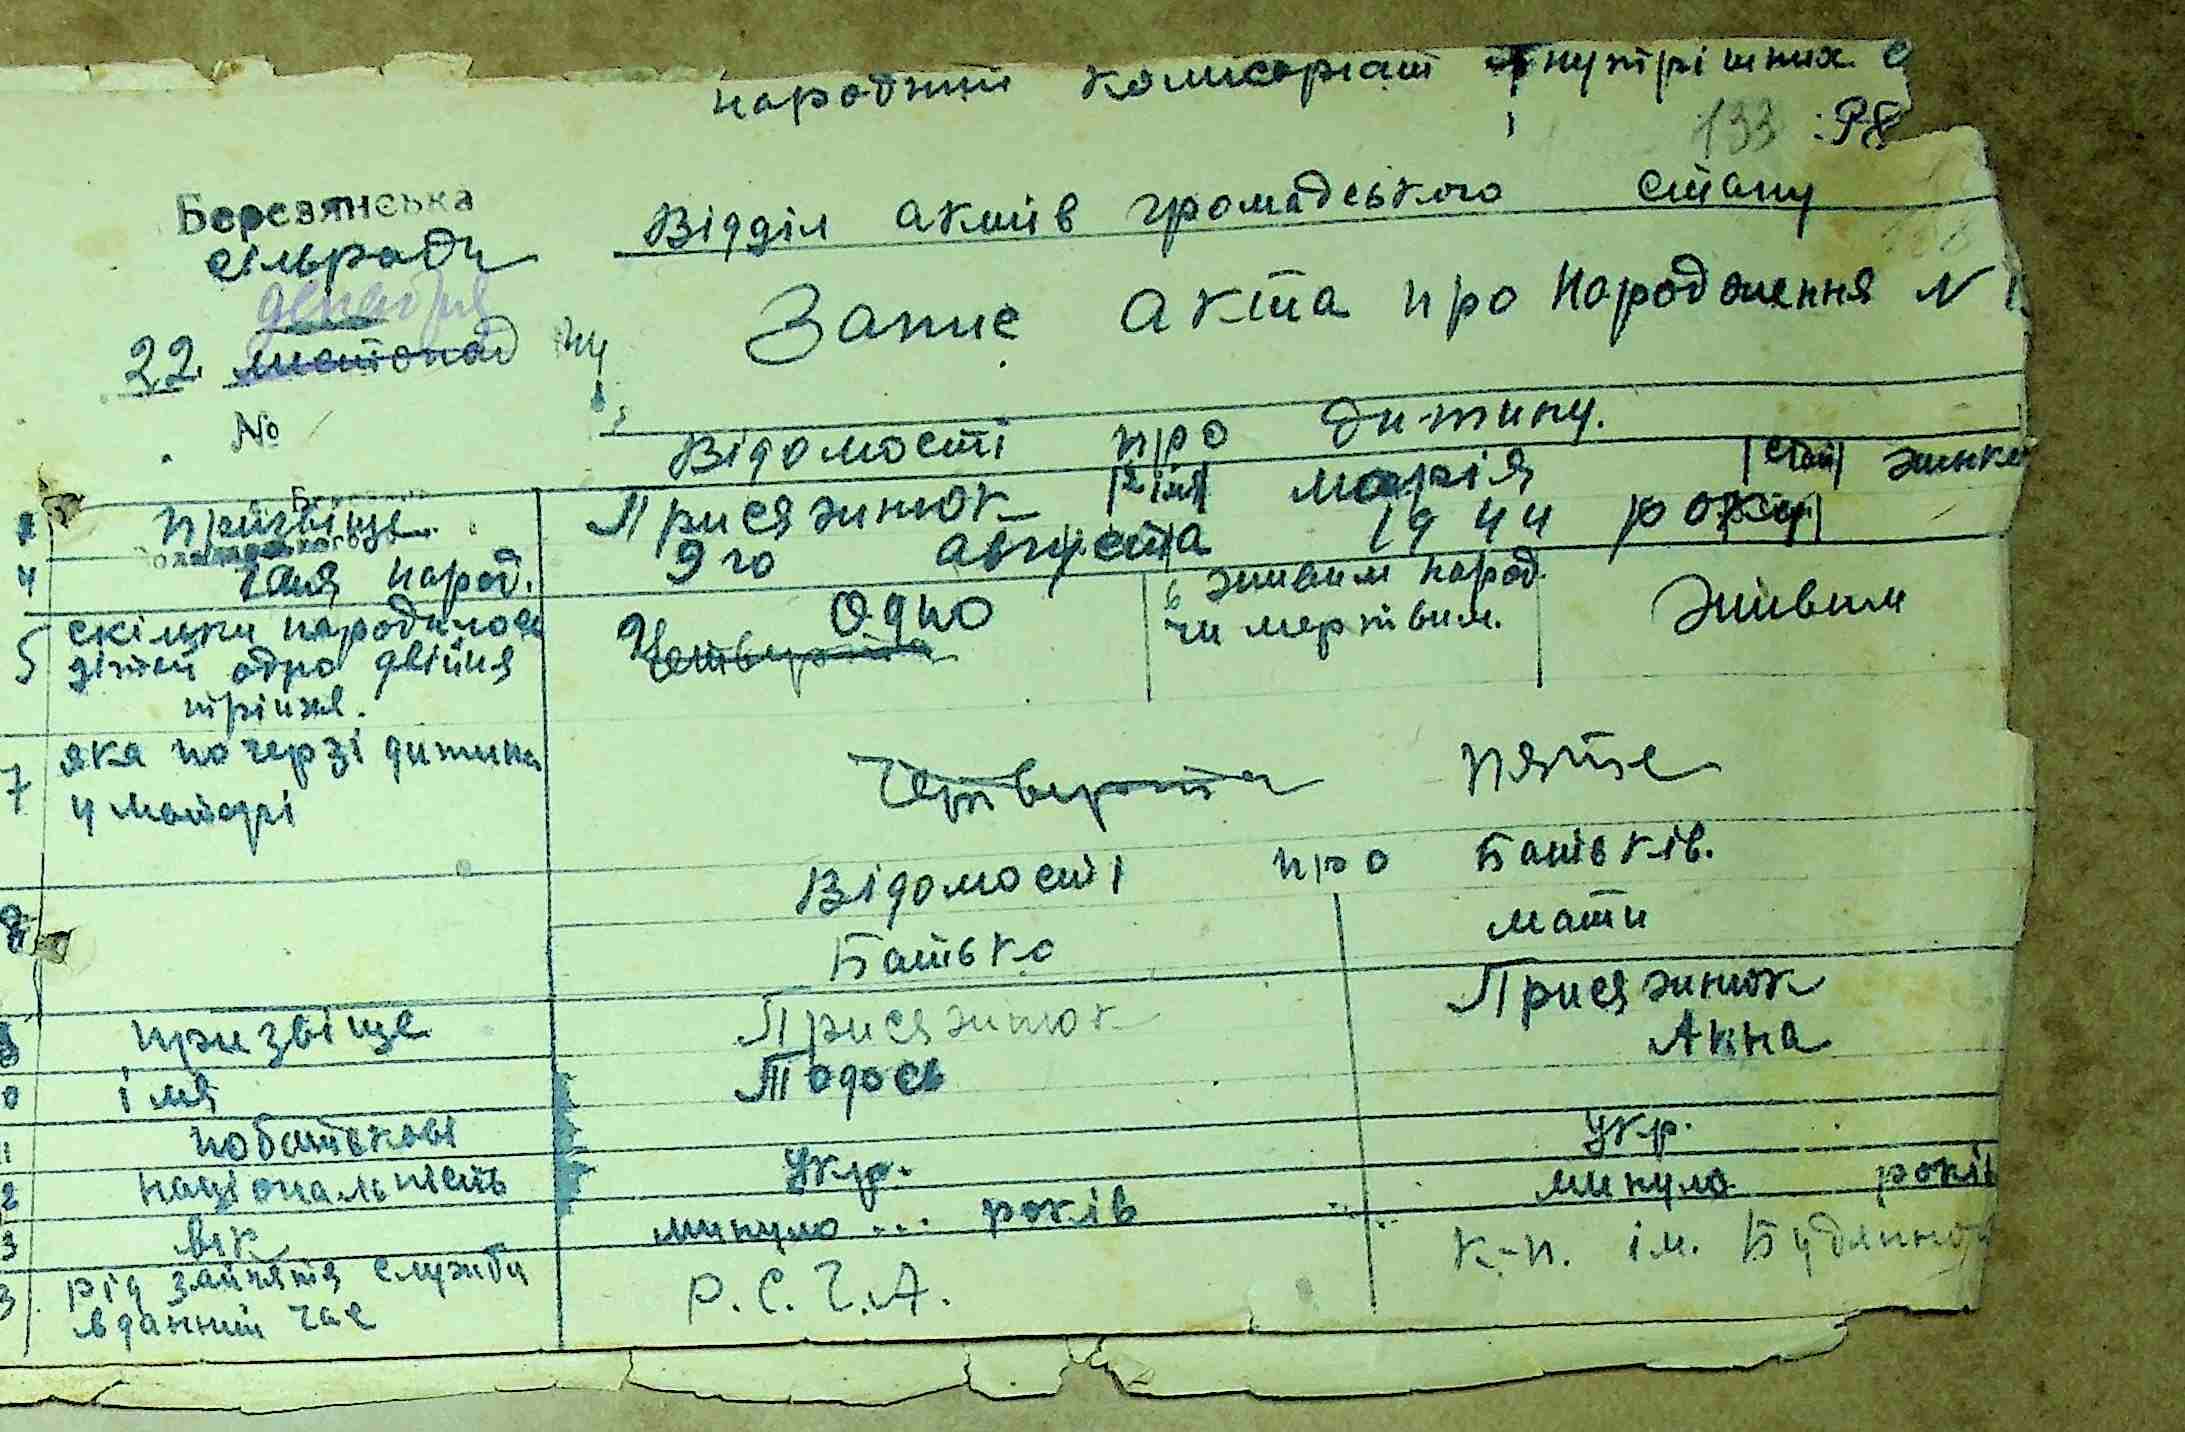 народний комисаріат внутрішних с
133
Відділ актів громадського стану
Березянська
сільради
декабря
22 листопад
№
Запис акта про народження N
Відомості про дитину.
Призвіще Присяжнюк 2 імя Марія стать жінка
4 Час народ. 9 го августа 1944 року
5 скільки народилося дітей одно двійня трійня. Четверта Одно 6 живим народ. чи мертвим. Живим
7 яка по черзі дитина у матері Четверта Пяте
Відомості про Батьків.
Батько мати
призвіще Присяжнюк Присяжнюк
імя Тодось Анна
побатькові
національність Укр. Укр.
вік минуло ... років минуло років
рід заняття служби в данний час Р.С.Ч.А. к-п. ім. Будянного